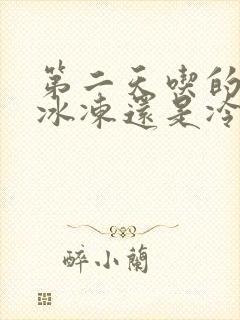 第二天喫的
冰凍還是冷
醉小蘭